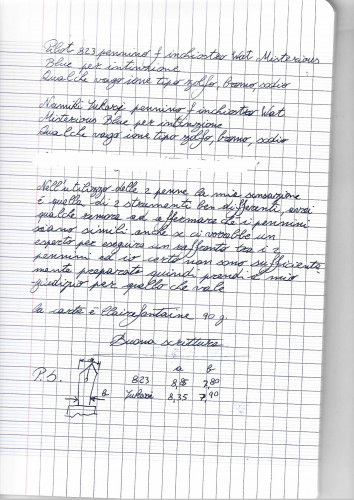 Pilot 823 pennino f inchiostro Wat Misterious
Blue per intinzione
Qualche vago ione tipo zolfo, bromo, sodio
Namiki Yukari pennino f inchiostro Wat
Misterious Blue per intinzione
Qualche vago ione tipo zolfo, bromo, sodio
Nell'utilizzo delle 2 penne la mia sensazione
è quella di 2 strumenti ben differenti, avrei
qualche remora ad affermare che i pennini
siano simili anche se ci vorrebbe un
esperto per eseguire un raffronto tra i 2
pennini ed io certo non sono sufficiente
mente preparato quindi prendi il mio
giudizio per quello che vale
la carta è Clairefontaine 90 g.
Buona scrittura
P.S.
a b
823 8,85 7,80
Yukari 8,35 7,90